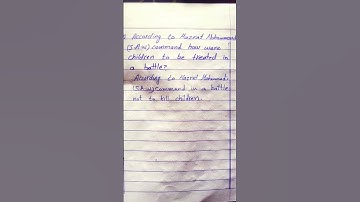 According to Hazrat Mohammad
(S.A.W) command how were
children to be treated in
a battle?
According to Hazrat Mohammad
(S.A.W) command in a battle
not to kill children.